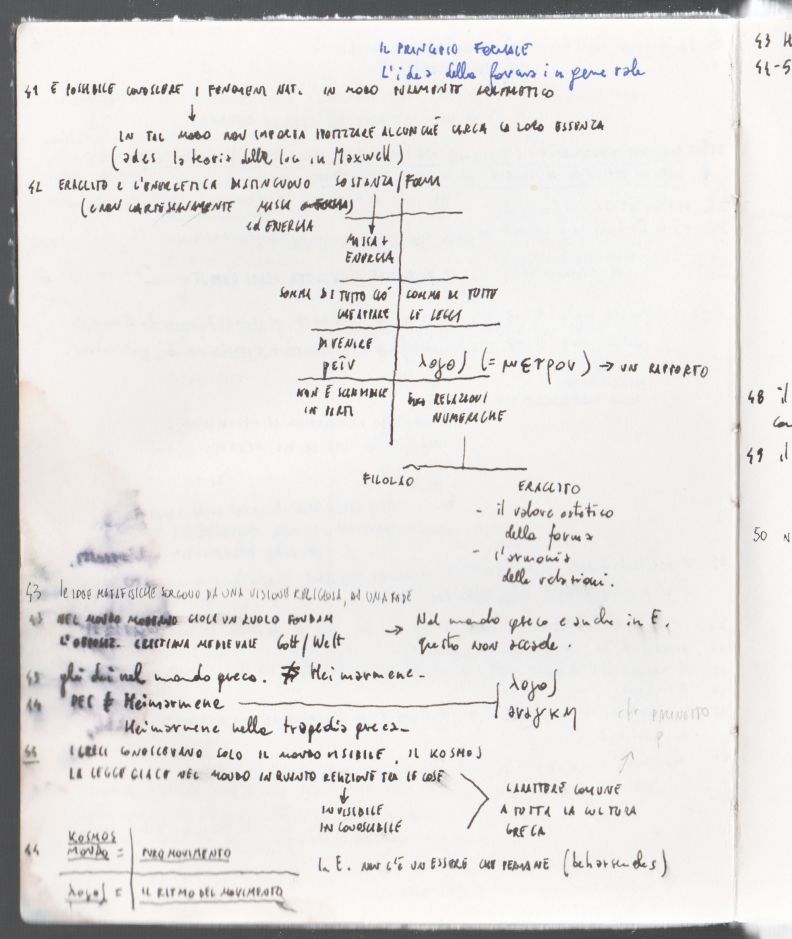 IL PRINCIPIO FORMALE
L'idea della forma in generale
41 È POSSIBILE CONOSCERE I FENOMENI NAT. IN MODO PURAMENTE ARITMETICO
↓
IN TAL MODO NON IMPORTA IPOTIZZARE ALCUNCHÉ CIRCA LA LORO ESSENZA
(ad es la teoria della luce in Maxwell)
42 ERACLITO E L'ENERGETICA DISTINGUONO SOSTANZA/FORMA
(E NON CARTESIANAMENTE MASSA
ED ENERGIA
MASSA +
ENERGIA
SOMMA DI TUTTO CIÒ CHE APPARE
SOMMA DI TUTTE LE LEGGI
DIVENIRE
ρεῖν
λογος (= μετρον) → UN RAPPORTO
NON È SCINDIBILE IN PARTI
RELAZIONI NUMERICHE
FILOLAO
ERACLITO
- il valore estetico
della forma
- l'armonia
delle relazioni.
43 le IDEE METAFISICHE SORGONO DA UNA VISIONE RELIGIOSA, DA UNA FEDE
43 NEL MONDO MODERNO GIOCA UN RUOLO FONDAM
L'OPPOSIZ. CRISTIANA MEDIEVALE Gott/Welt
→ Nel mondo greco e anche in E.
questo NON accade.
43 gli dei nel mondo greco. ≠ Heimarmene -
44 PER Heimarmene
λογος
αναγκη
Heimarmene nella tragedia greca -
cfr
44 I GRECI CONOSCEVANO SOLO IL MONDO VISIBILE, IL KOSMOS
LA LEGGE GIACE NEL MONDO IN QUANTO RELAZIONE TRA LE COSE
↓
INVISIBILE
INCONOSCIBILE
CARATTERE COMUNE
A TUTTA LA CULTURA
GRECA
44 KOSMOS
MONDO = PURO MOVIMENTO
λογος = IL RITMO DEL MOVIMENTO
In E. NON C'È UN ESSERE CHE PERMANE (beharrendes)
43
44-5
48 il
49 il
50 N